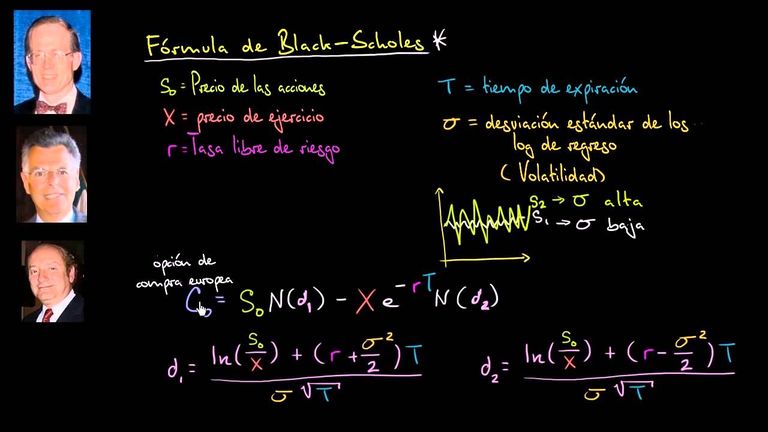 Fórmula de Black-Scholes *
S₀ = Precio de las acciones
X = precio de ejercicio
r = Tasa libre de riesgo
T = tiempo de expiración
σ = desviación estándar de los
log de regreso
(Volatilidad)
S₂ → σ alta
S₁ → σ baja
opción de
compra europea
C₀ = S₀ N(d₁) - X e^(-rT) N(d₂)
d₁ = (ln(S₀/X) + (r + σ²/2) T) / (σ √T)
d₂ = (ln(S₀/X) + (r - σ²/2) T) / (σ √T)